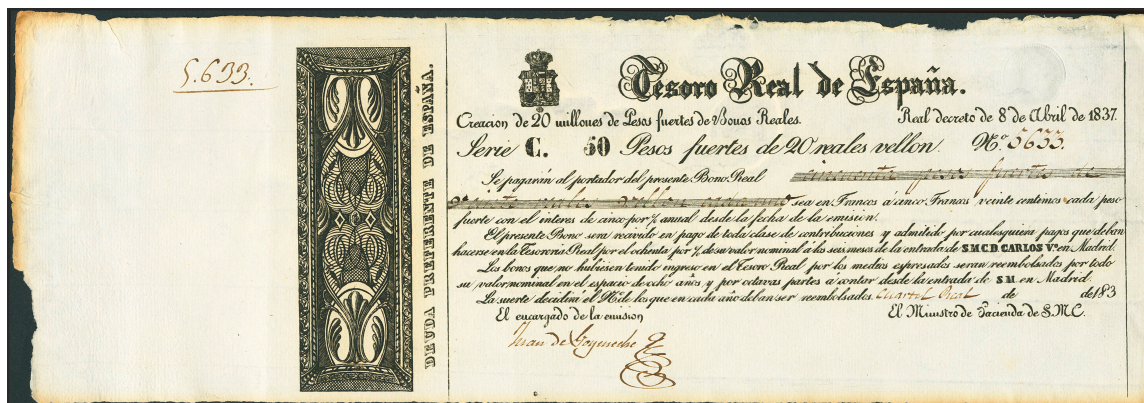 5.633.
DEUDA PREFERENTE DE ESPAÑA.
Tesoro Real de España.
Creacion de 20 millones de Pesos fuertes de Bonos Reales. Real decreto de 8 de Abril de 1837.
Serie C. 50 Pesos fuertes de 20 reales vellon. Nº 5633.
Se pagarán al portador del presente Bono Real cincuenta pesos fuertes de
veinte reales vellon cada uno sea en Francos á cinco Francos veinte centimos cada peso
fuerte con el interes de cinco por % anual desde la fecha de la emision.
El presente Bono sera recivido en pago de toda clase de contribuciones y admitido por cualesquiera pagos que deban
hacerse en la Tesoreria Real por el ochenta por % de su valor nominal á los seis meses de la entrada de S.M.C.D. CARLOS Vº. en Madrid.
Los bonos que no hubiesen tenido ingreso en el Tesoro Real por los medios espresados seran reembolsados por todo
su valor nominal en el espacio de ocho años y por octavas partes á contar desde la entrada de S.M. en Madrid.
La suerte decidirá el Nº de los que en cada año deban ser reembolsados. Cuartel Real de de 183
El encargado de la emision El Ministro de Hacienda de S.M.C.
Juan de Goyeneche